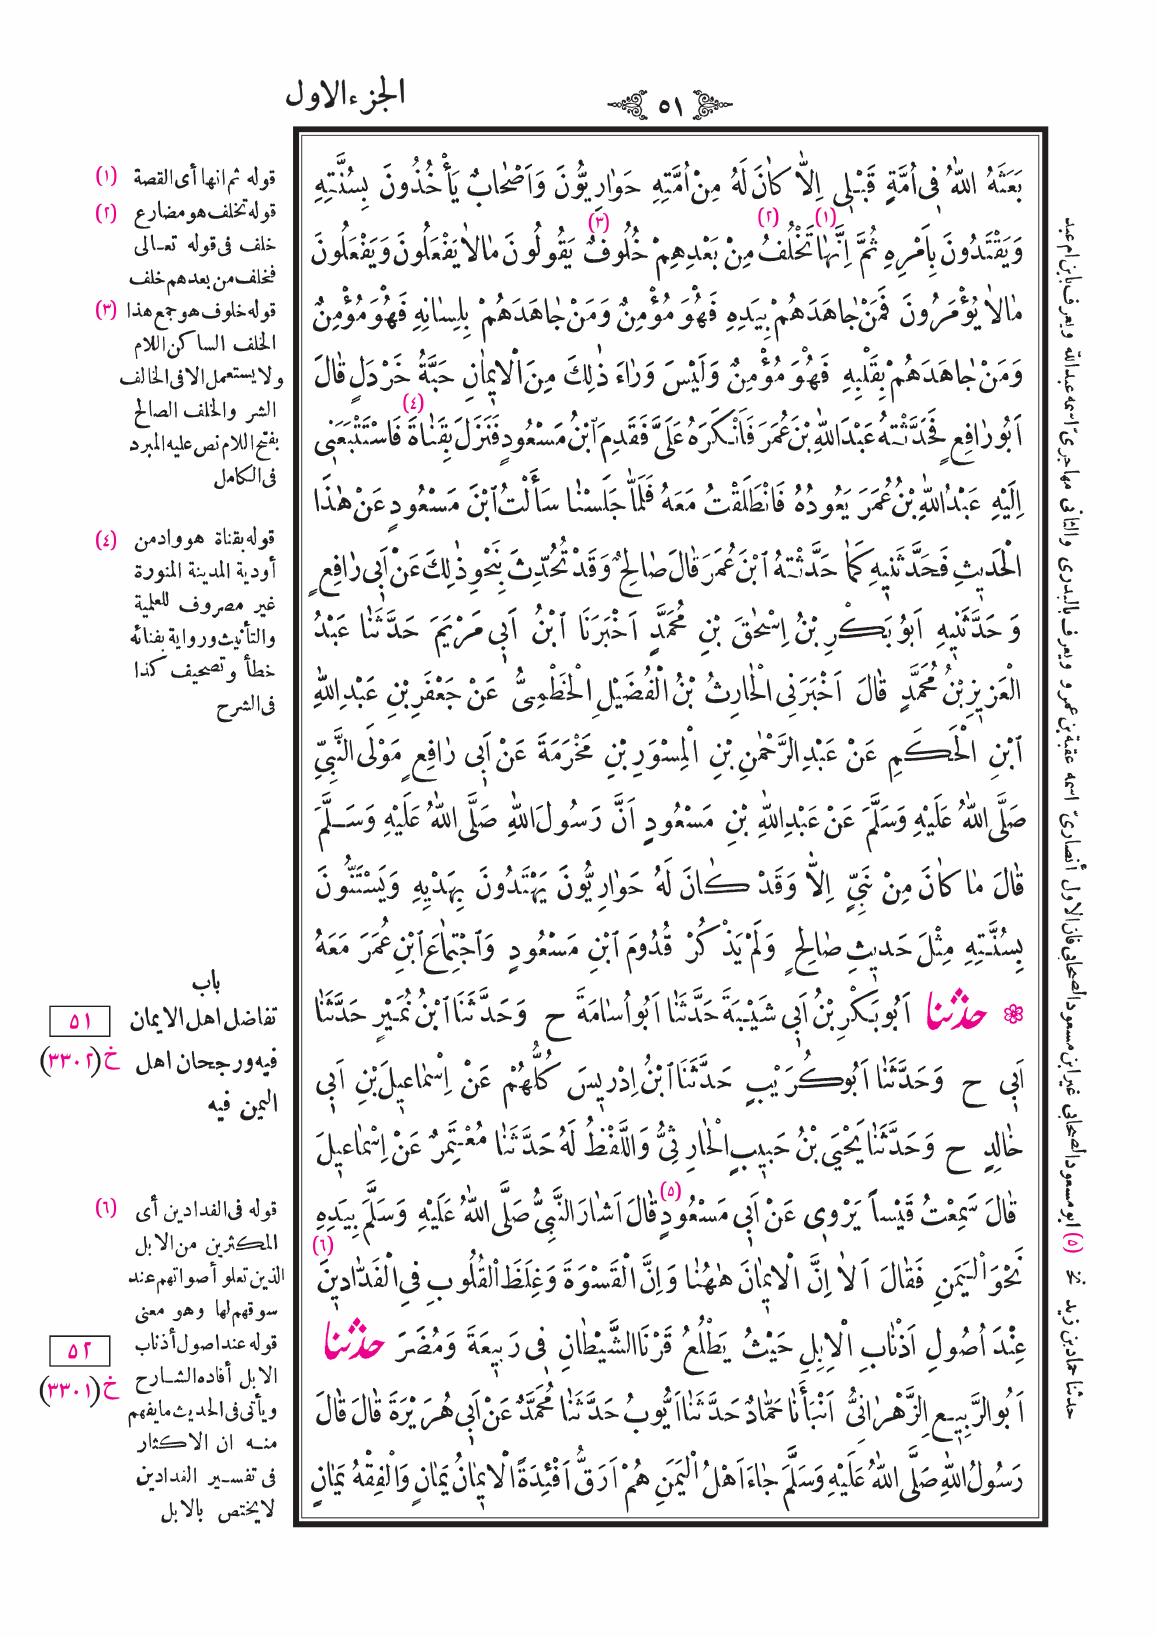 الجزء الاول
٥١
بَعَثَهُ اللّٰهُ فِى اُمَّةٍ قَبْلِى اِلَّا كَانَ لَهُ مِنْ اُمَّتِهِ حَوَارِيُّونَ وَاَصْحَابٌ يَأْخُذُونَ بِسُنَّتِهِ
وَيَقْتَدُونَ بِاَمْرِهِ ثُمَّ اِنَّهَا (١) تَخْلُفُ (٢) مِنْ بَعْدِهِمْ خُلُوفٌ (٣) يَقُولُونَ مَالَا يَفْعَلُونَ وَيَفْعَلُونَ
مَالَا يُؤْمَرُونَ فَمَنْ جَاهَدَهُمْ بِيَدِهِ فَهُوَ مُؤْمِنٌ وَمَنْ جَاهَدَهُمْ بِلِسَانِهِ فَهُوَ مُؤْمِنٌ
وَمَنْ جَاهَدَهُمْ بِقَلْبِهِ فَهُوَ مُؤْمِنٌ وَلَيْسَ وَرَاءَ ذٰلِكَ مِنَ الْاِيمَانِ حَبَّةُ خَرْدَلٍ قَالَ
اَبُورَافِعٍ فَحَدَّثْتُهُ عَبْدَاللّٰهِ بْنَ عُمَرَ فَاَنْكَرَهُ عَلَىَّ فَقَدِمَ ابْنُ مَسْعُودٍ فَنَزَلَ بِقَنَاةَ (٤) فَاسْتَتْبَعَنِى
اِلَيْهِ عَبْدُاللّٰهِ بْنُ عُمَرَ يَعُودُهُ فَانْطَلَقْتُ مَعَهُ فَلَمَّا جَلَسْنَا سَأَلْتُ ابْنَ مَسْعُودٍ عَنْ هٰذَا
الْحَدِيثِ فَحَدَّثَنِيهِ كَمَا حَدَّثْتُهُ ابْنَ عُمَرَ قَالَ صَالِحٌ وَقَدْ تُحُدِّثَ بِنَحْوِ ذٰلِكَ عَنْ اَبِى رَافِعٍ
وَحَدَّثَنِيهِ اَبُو بَكْرِ بْنُ اِسْحٰقَ بْنِ مُحَمَّدٍ اَخْبَرَنَا ابْنُ اَبِى مَرْيَمَ حَدَّثَنَا عَبْدُ
الْعَزِيزِ بْنُ مُحَمَّدٍ قَالَ اَخْبَرَنِى الْحَارِثُ بْنُ الْفُضَيْلِ الْخَطْمِىُّ عَنْ جَعْفَرِ بْنِ عَبْدِ اللّٰهِ
ابْنِ الْحَكَمِ عَنْ عَبْدِ الرَّحْمٰنِ بْنِ الْمِسْوَرِ بْنِ مَخْرَمَةَ عَنْ اَبِى رَافِعٍ مَوْلَى النَّبِىِّ
صَلَّى اللّٰهُ عَلَيْهِ وَسَلَّمَ عَنْ عَبْدِ اللّٰهِ بْنِ مَسْعُودٍ اَنَّ رَسُولَ اللّٰهِ صَلَّى اللّٰهُ عَلَيْهِ وَسَلَّمَ
قَالَ مَا كَانَ مِنْ نَبِىٍّ اِلَّا وَقَدْ كَانَ لَهُ حَوَارِيُّونَ يَهْتَدُونَ بِهَدْيِهِ وَيَسْتَنُّونَ
بِسُنَّتِهِ مِثْلَ حَدِيثِ صَالِحٍ وَلَمْ يَذْكُرْ قُدُومَ ابْنِ مَسْعُودٍ وَاجْتِمَاعَ ابْنِ عُمَرَ مَعَهُ
حَدَّثَنَا اَبُو بَكْرِ بْنُ اَبِى شَيْبَةَ حَدَّثَنَا اَبُو اُسَامَةَ ح وَحَدَّثَنَا ابْنُ نُمَيْرٍ حَدَّثَنَا
اَبِى ح وَحَدَّثَنَا اَبُو كُرَيْبٍ حَدَّثَنَا ابْنُ اِدْرِيسَ كُلُّهُمْ عَنْ اِسْمَاعِيلَ بْنِ اَبِى
خَالِدٍ ح وَحَدَّثَنَا يَحْيَى بْنُ حَبِيبٍ الْحَارِثِىُّ وَاللَّفْظُ لَهُ حَدَّثَنَا مُعْتَمِرٌ عَنْ اِسْمَاعِيلَ
قَالَ سَمِعْتُ قَيْساً يَرْوِى عَنْ اَبِى مَسْعُودٍ (٥) قَالَ اَشَارَ النَّبِىُّ صَلَّى اللّٰهُ عَلَيْهِ وَسَلَّمَ بِيَدِهِ
نَحْوَ الْيَمَنِ فَقَالَ اَلَا اِنَّ الْاِيمَانَ هٰهُنَا وَاِنَّ الْقَسْوَةَ وَغِلَظَ الْقُلُوبِ فِى الْفَدَّادِينَ (٦)
عِنْدَ اُصُولِ اَذْنَابِ الْاِبِلِ حَيْثُ يَطْلُعُ قَرْنَا الشَّيْطَانِ فِى رَبِيعَةَ وَمُضَرَ حَدَّثَنَا
اَبُو الرَّبِيعِ الزَّهْرَانِىُّ اَنْبَأَنَا حَمَّادٌ حَدَّثَنَا اَيُّوبُ حَدَّثَنَا مُحَمَّدٌ عَنْ اَبِى هُرَيْرَةَ قَالَ قَالَ
رَسُولُ اللّٰهِ صَلَّى اللّٰهُ عَلَيْهِ وَسَلَّمَ جَاءَ اَهْلُ الْيَمَنِ هُمْ اَرَقُّ اَفْئِدَةً الْاِيمَانُ يَمَانٍ وَالْفِقْهُ يَمَانٍ
(١) قوله ثم انها أى القصة
(٢) قوله تخلف هو مضارع
خلف فى قوله تعالى
فخلف من بعدهم خلف
(٣) قوله خلوف هو جمع هذا
الخلف الساكن اللام
ولا يستعمل الا فى الخالف
الشر والخلف الصالح
بفتح اللام نص عليه المبرد
فى الكامل
(٤) قوله بقناة هو واد من
أودية المدينة المنورة
غير مصروف للعلمية
والتأنيث ورواية بفنائه
خطأ وتصحيف كذا
فى الشرح
باب
تفاضل اهل الايمان
فيه ورجحان اهل
اليمن فيه
٥١
خ (٣٣٠٢)
(٦) قوله فى الفدادين أى
المكثرين من الابل
الذين تعلو أصواتهم عند
سوقهم لها وهو معنى
قوله عند اصول أذناب
الابل أفاده الشارح
ويأتى فى الحديث ما يفهم
منه ان الاكثار
فى تفسير الفدادين
لا يختص بالابل
٥٢
خ (٣٣٠١)
(٥) ابو مسعود الصحابى غير ابن مسعود الصحابى فان الاول أنصارىّ اسمه عقبة بن عمرو ويعرف بالبدرى والثانى مهاجرىّ اسمه عبدالله ويعرف بابن ام عبد
حدثنا حماد بن زيد نخ